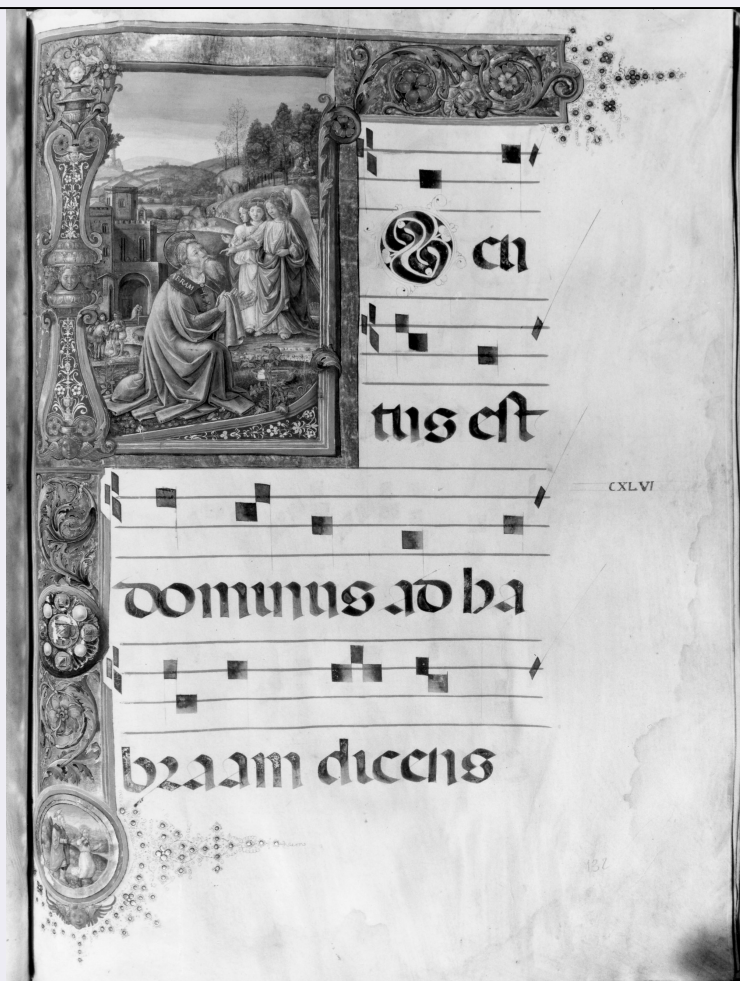 LOcu
tus est
CXLVI
dominus ad ha
braam dicens